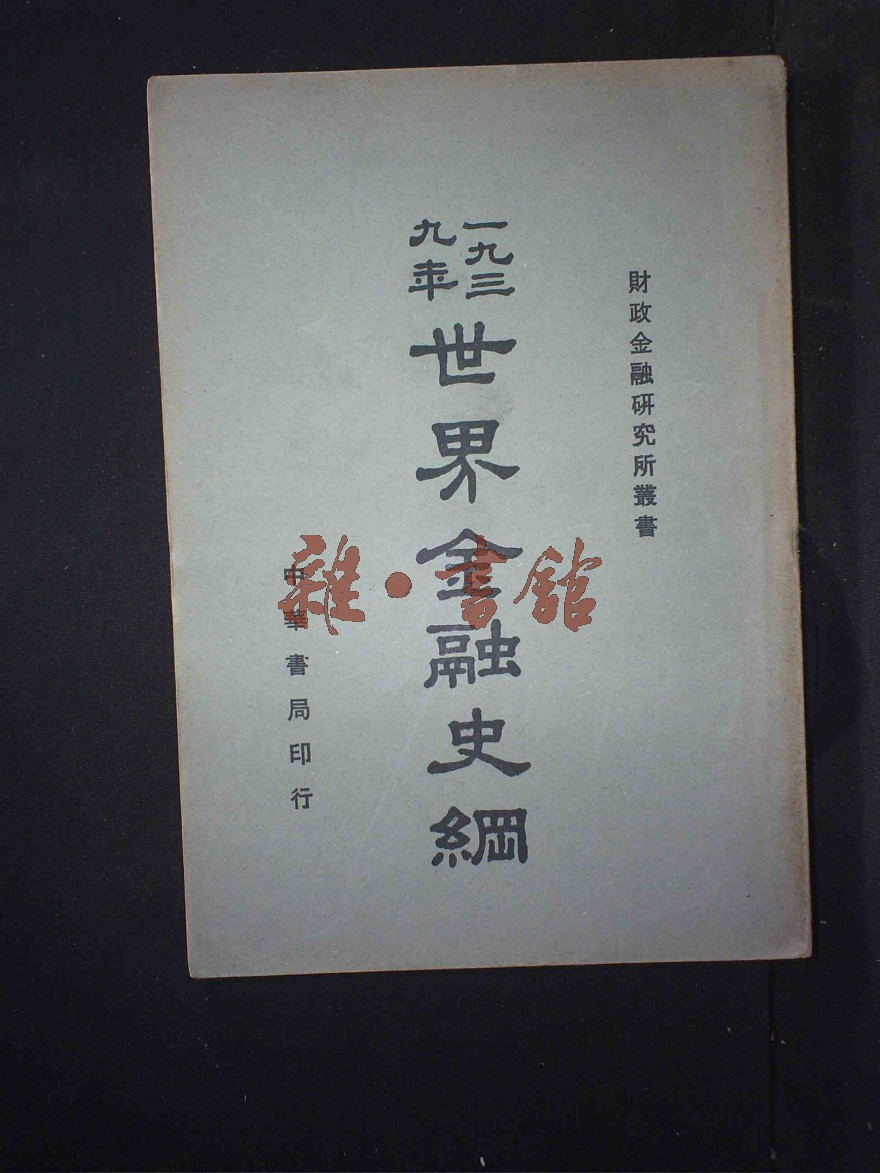 財政金融研究所叢書
一九三
九年
世界金融史綱
中華書局印行
雜·書館